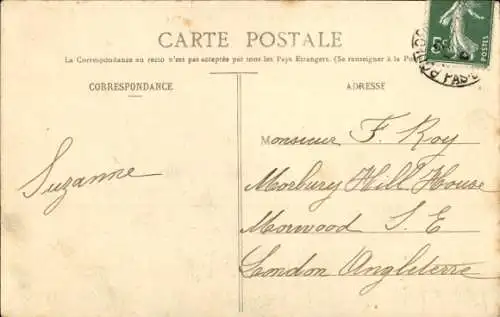 CARTE POSTALE
La Correspondance au recto n'est pas acceptée par tous les Pays Etrangers. (Se renseigner à la Po
CORRESPONDANCE
ADRESSE
5
POSTES
PAS-D
Monsieur F. Roy
Suzanne
Morbury Hill House
Morwood S. E
London Angleterre